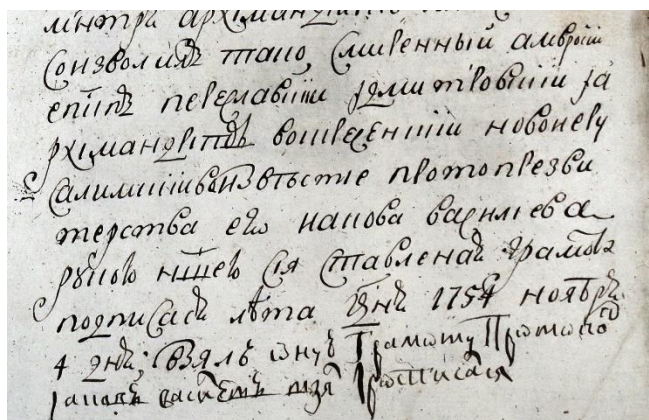 митри архимандритъ
соизволилъ тако, смиренный амвросіи
епископъ переславскіи идмитровскіи ia
рхімандритъ воскресенскіи новоиеру
салимскіи воизвѣстие протопрезви
терства его иакова василіева
рукою нашею сія ставленая грамота
подписася лѣта Гдня 1754 ноября
4 дня; Взялъ ону Грамоту Протопоп
iаковъ василевъ